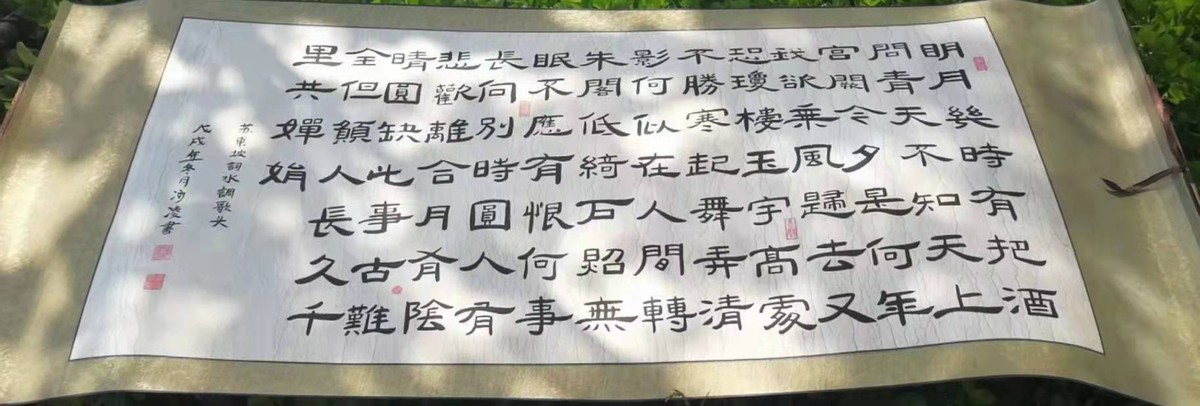 明月幾時有把酒
問青天不知天上
宮闕今夕是何年
我欲乘風歸去又
恐瓊樓玉宇高處
不勝寒起舞弄清
影何似在人間轉
朱閣低綺户照無
眠不應有恨何事
長向別時圓人有
悲歡離合月有陰
晴圓缺此事古難
全但願人長久千
里共嬋娟
苏東坡詞水調歌头
戊戌年冬月凌書